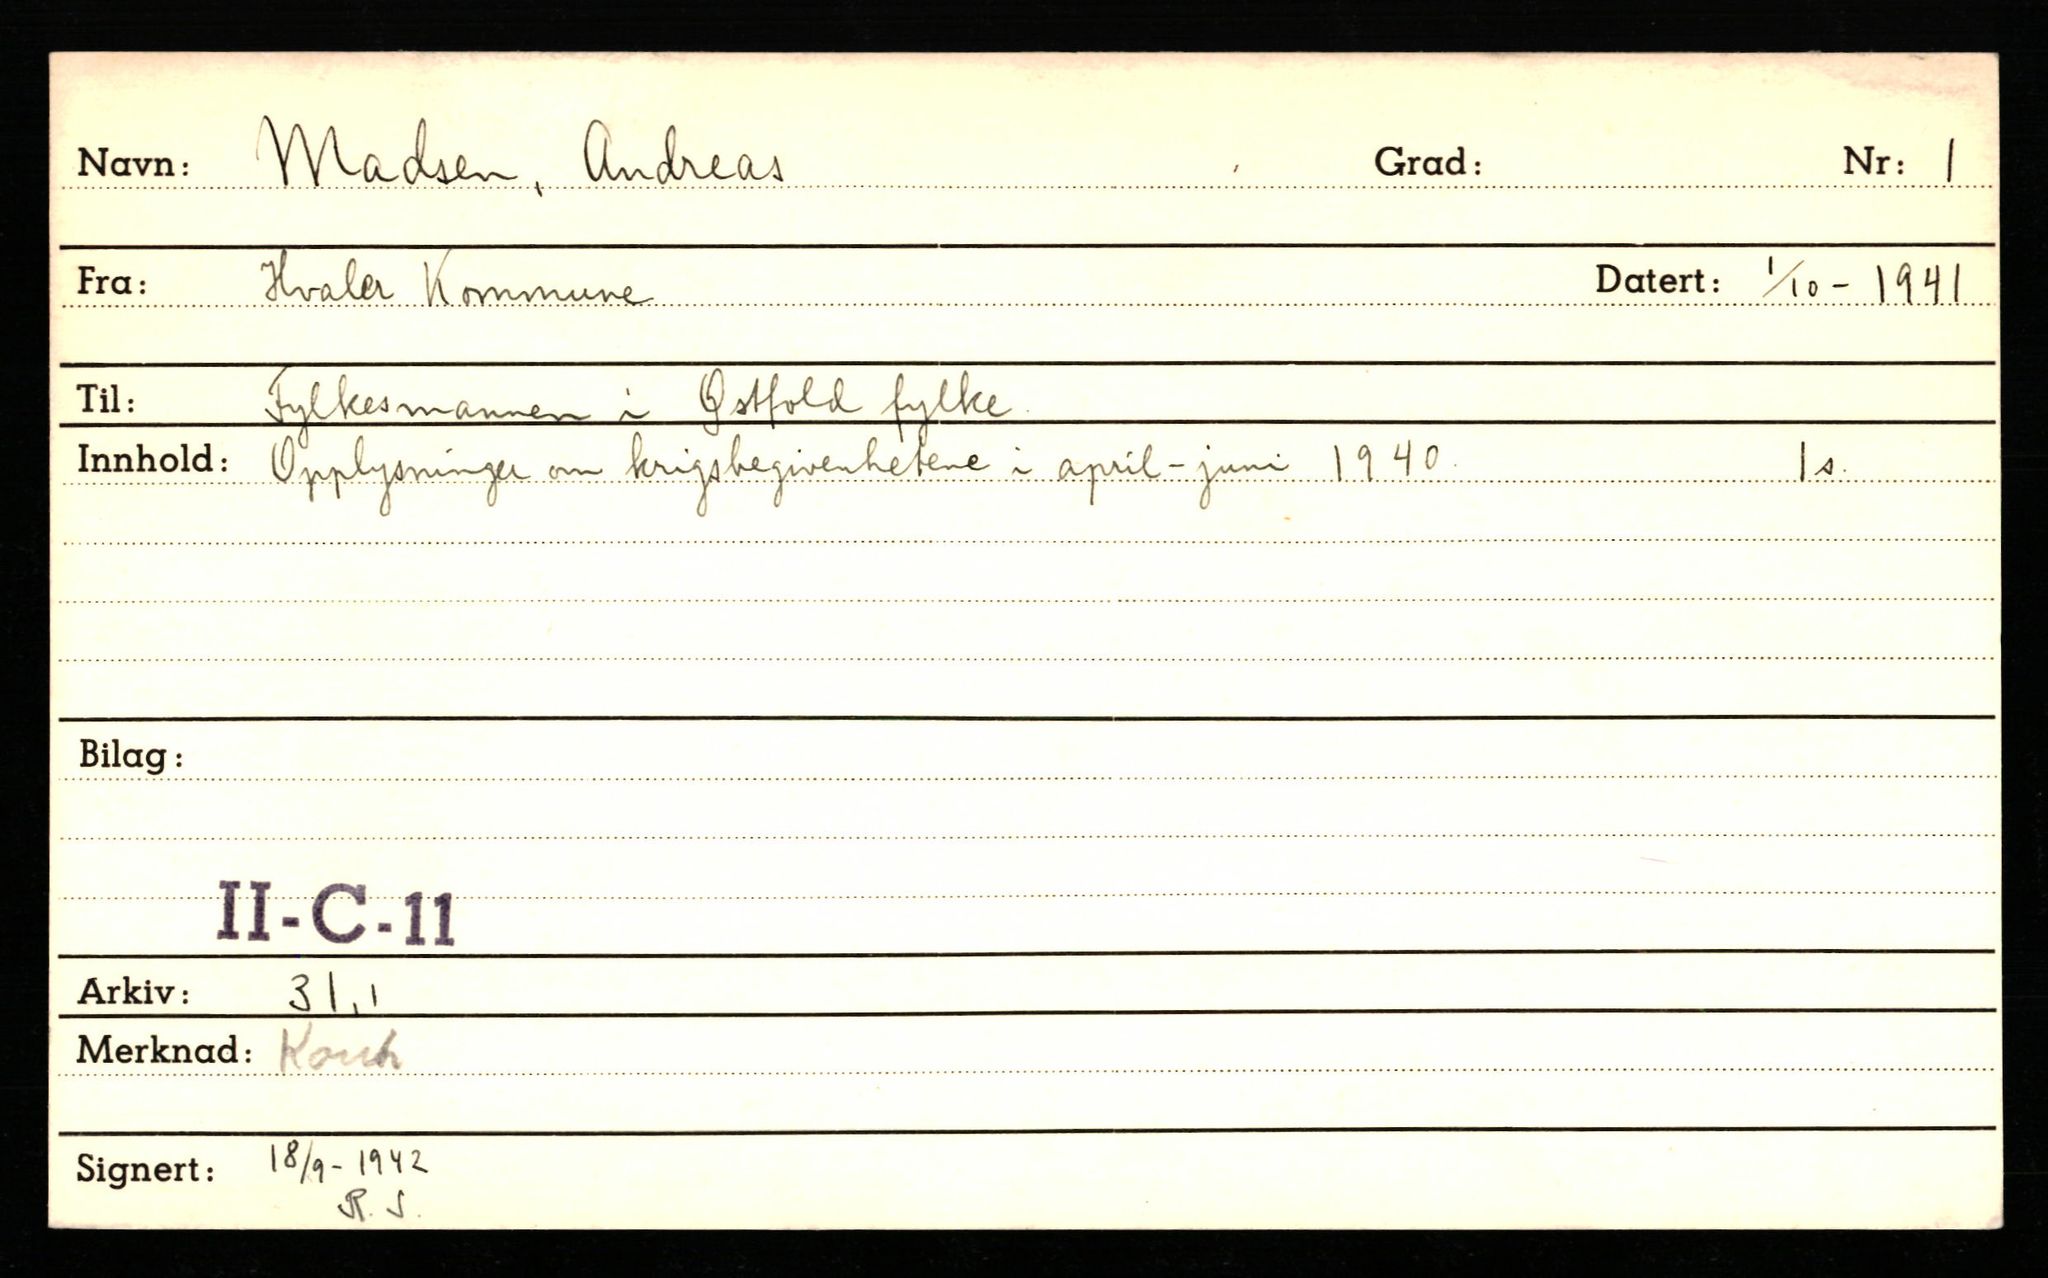 Navn: Madsen, Andreas Grad: Nr: 1
Fra: Hvaler Kommune Datert: 1/10 - 1941
Til: Fylkesmannen i Østfold fylke.
Innhold: Opplysninger om krigsbegivenhetene i april - juni 1940. 1 s.
Bilag:
II-C-11
Arkiv: 31,1
Merknad:
Signert: 18/9 - 1942
R. S.